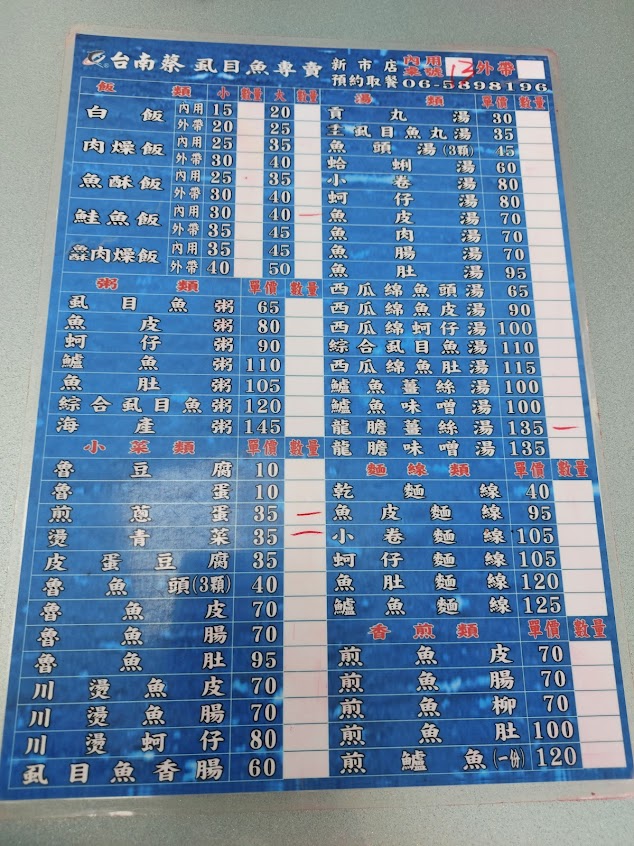 台南蔡 虱目魚專賣 新市店 內用桌號 13 外帶
預約取餐 06-5898196
飯類 小 數量 大 數量
白飯 內用 15 20
外帶 20 25
肉燥飯 內用 25 35
外帶 30 40
魚酥飯 內用 25 35
外帶 30 40
鮭魚飯 內用 30 40 一
外帶 35 45
魚酥肉燥飯 內用 35 45
外帶 40 50
粥類 單價 數量
虱目魚粥 65
魚皮粥 80
蚵仔粥 90
鱸魚粥 110
魚肚粥 105
綜合虱目魚粥 120
海產粥 145
小菜類 單價 數量
魯豆腐 10
魯蛋 10
煎蔥蛋 35 一
燙青菜 35 一
皮蛋豆腐 35
魯魚頭(3顆) 40
魯魚皮 70
魯魚腸 70
魯魚肚 95
川燙魚皮 70
川燙魚腸 70
川燙蚵仔 80
虱目魚香腸 60
湯類 單價 數量
貢丸湯 30
虱目魚丸湯 35
魚頭湯(3顆) 45
蛤蜊湯 60
小卷湯 80
蚵仔湯 80
魚皮湯 70
魚肉湯 70
魚腸湯 70
魚肚湯 95
西瓜綿魚頭湯 65
西瓜綿魚皮湯 90
西瓜綿蚵仔湯 100
綜合虱目魚湯 110
西瓜綿魚肚湯 115
鱸魚薑絲湯 100
鱸魚味噌湯 100
龍膽薑絲湯 135 一
龍膽味噌湯 135
麵線類 單價 數量
乾麵線 40
魚皮麵線 95
小卷麵線 105
蚵仔麵線 105
魚肚麵線 120
鱸魚麵線 125
香煎類 單價 數量
煎魚皮 70
煎魚腸 70
煎魚柳 70
煎魚肚 100
煎鱸魚(一份) 120